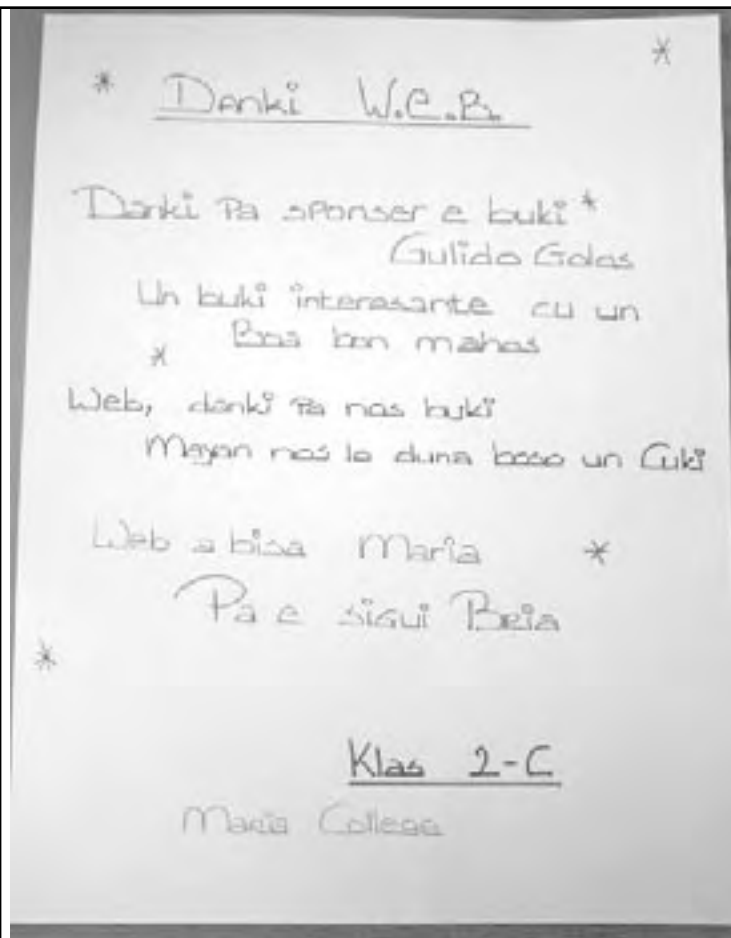 * Danki W.E.B. *
Danki Pa sponser e buki *
Gulido Golos
Un buki interesante cu un
Bos bon mahos
*
Web, danki Pa nos buki
Mayan nos lo duna boso un Cuki
Web a bisa Maria *
Pa e sigui Bria
*
Klas 2-C
Maria College